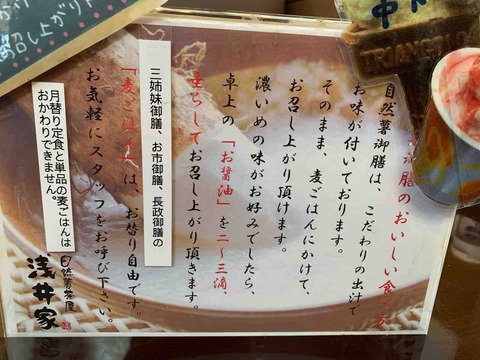 御膳のおいしい食べ方
自然薯御膳は、こだわりの出汁で
お味が付いております。
そのまま、麦ごはんにかけて、
お召し上がり頂けます。
濃いめの味がお好みでしたら、
卓上の「お醤油」を二〜三滴、
垂らしてお召し上がり頂きます。
三姉妹御膳、お市御膳、長政御膳の
「麦ごはん」は、お替り自由です。
お気軽にスタッフをお呼び下さい。
月替り定食と単品の麦ごはんは
おかわりできません。
自然薯茶屋
浅井家
召し上がり
TRIANGLE